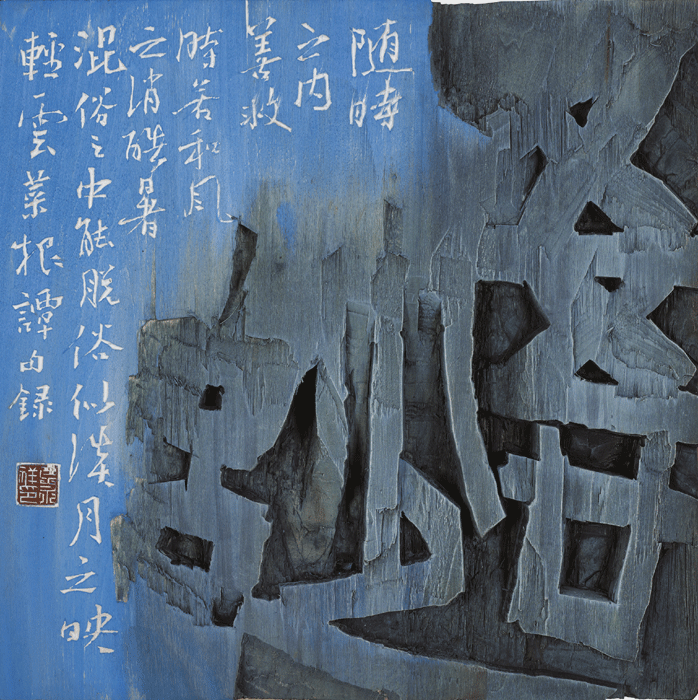 随時
之内
善救
時若和風
之消酷暑
混俗之中能脱俗似淡月之映
輕雲菜根譚句録